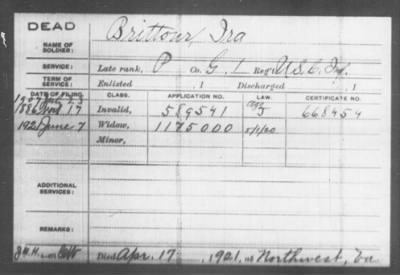 DEAD
NAME OF SOLDIER: Brittour, Ira
SERVICE: Late rank, P Co. G 1 Reg't U.S.C. Inf.
TERM OF SERVICE: Enlisted 1 Discharged 1
DATE OF FILING. CLASS. APPLICATION NO. LAW. CERTIFICATE NO.
1886 17 Invalid, 589541 668454
1921 June 7 Widow, 1175000 5/1/20
Minor,
ADDITIONAL SERVICES:
REMARKS:
Died Apr. 17, 1921, at Northwest, Va